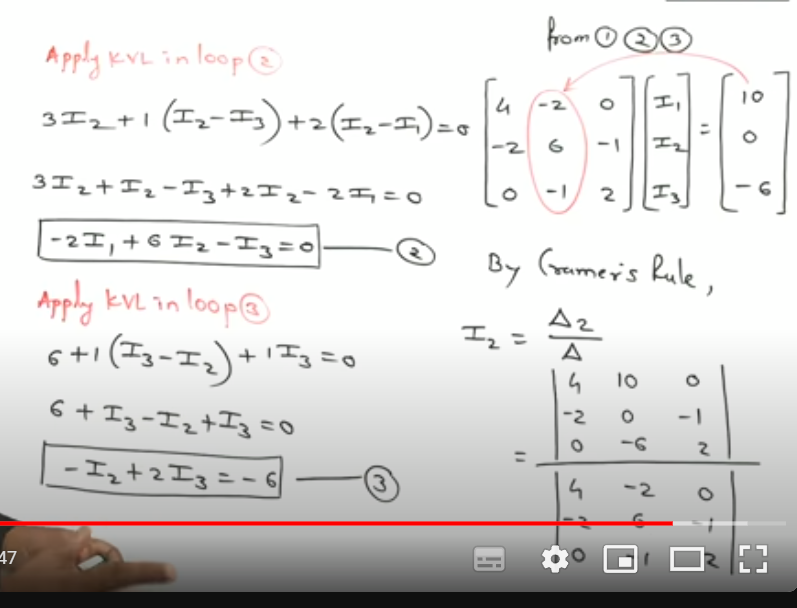 Apply KVL in loop ②
3I₂ + 1 (I₂ - I₃) + 2(I₂ - I₁) = 0
3I₂ + I₂ - I₃ + 2I₂ - 2I₁ = 0
-2I₁ + 6I₂ - I₃ = 0 —— ②
Apply KVL in loop ③
6 + 1 (I₃ - I₂) + 1I₃ = 0
6 + I₃ - I₂ + I₃ = 0
-I₂ + 2I₃ = -6 —— ③
from ① ② ③
[4 -2 0] [I₁] [10]
[-2 6 -1] [I₂] = [0]
[0 -1 2] [I₃] [-6]
By Cramer's Rule,
I₂ = Δ2 / Δ
|4 10 0|
|-2 0 -1|
= |0 -6 2|
|4 -2 0|
|-2 6 -1|
|0 -1 2|
47